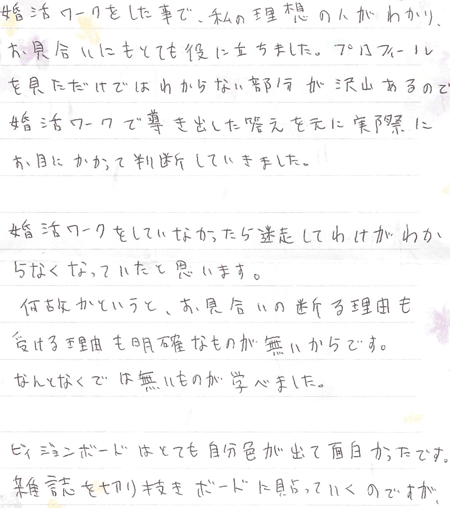 婚活ワークをした事で、私の理想の人がわかり、
お見合いにもとても役に立ちました。プロフィール
を見ただけではわからない部分が沢山あるので
婚活ワークで導き出した答えを元に実際に
お目にかかって判断していきました。
婚活ワークをしていなかったら迷走してわけがわか
らなくなっていたと思います。
何故かというと、お見合いの断る理由も
受ける理由も明確なものが無いからです。
なんとなくでは無いものが学べました。
ビィジョンボードはとても自分色が出て面白かったです。
雑誌を切り抜きボードに貼っていくのですが、